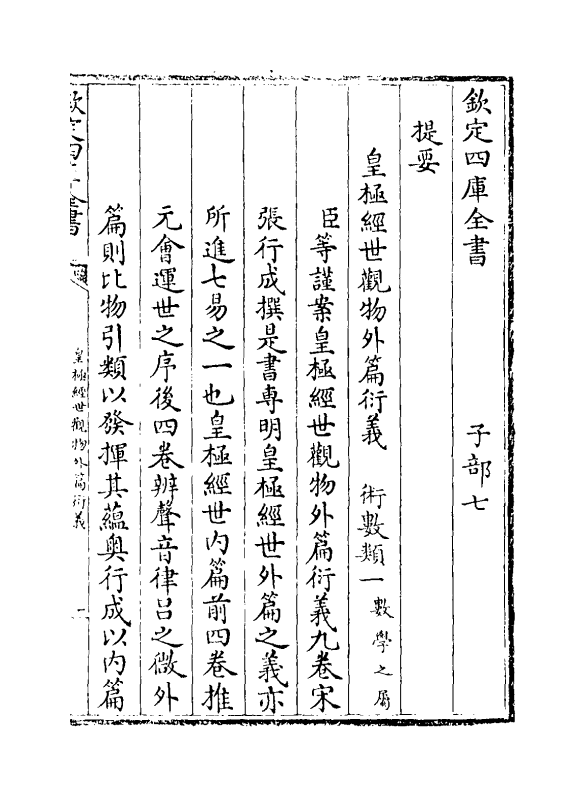 欽定四庫全書　　　　子部七
提要
皇極經世觀物外篇衍義　術數類一數學之屬
臣等謹案皇極經世觀物外篇衍義九卷宋
張行成撰是書專明皇極經世外篇之義亦
所進七易之一也皇極經世内篇前四卷推
元會運世之序後四卷辨聲音律吕之微外
篇則比物引類以發揮其蘊奥行成以内篇
欽定四庫全書
皇極經世觀物外篇衍義